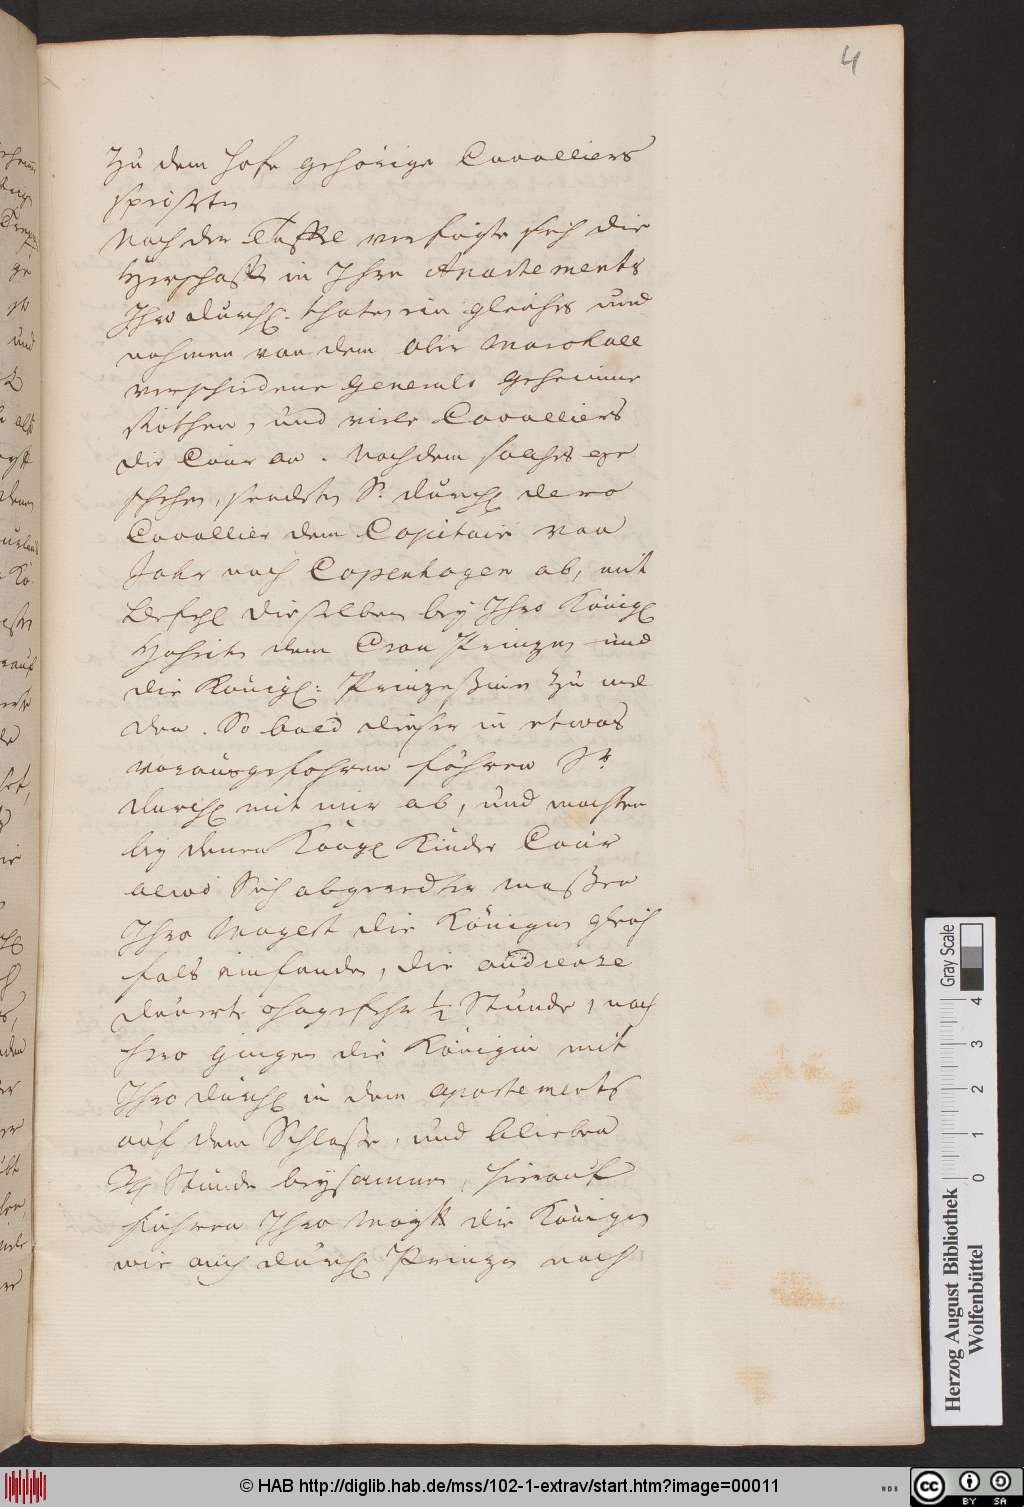 4
Zu dem Hofe gehörige Cavalliers
speiseten
Nach der Taffel verfügte sich die
Herschafft in Ihre Apartements
Ihro Durchl. thaten ein gleiches und
nahmen von dem Ober Marchall
verschiedene Generals Geheimme
Räthen, und viele Cavalliers
die Cour an. Nachdem solches ge
schehen, sendeten Sr. Durchl dero
Cavallier dem Capitain von
nach Copenhagen ab, mit
Befehl dieselben bey Ihro Königl
Hoheiten dem Cron Prinzen und
die Königl: Prinzeßinn zu mel
den. So bald dieser in etwas
vorausgefahren fuhren Sr.
Durchl mit mir ab, und machten
bey denen Königl Kinder Cour
alwo Sich abgeredter maßen
Ihro Mayest die Königin gleich
fals einfanden, die audience
dauerte ohngefehr 1/2 Stunde, nach
hero gingen die Königin mit
Ihro Durchl in dem apartements
auf dem Schloße, und blieben
3/4 Stunde beysammen, hierauf
fuhren Ihro Maystt die Königin
wie auch Durchl Prinzen nach
Gray Scale
4 3 2 1 0
Herzog August Bibliothek
Wolfenbüttel
© HAB http://diglib.hab.de/mss/102-1-extrav/start.htm?image=00011
WDB
cc BY SA